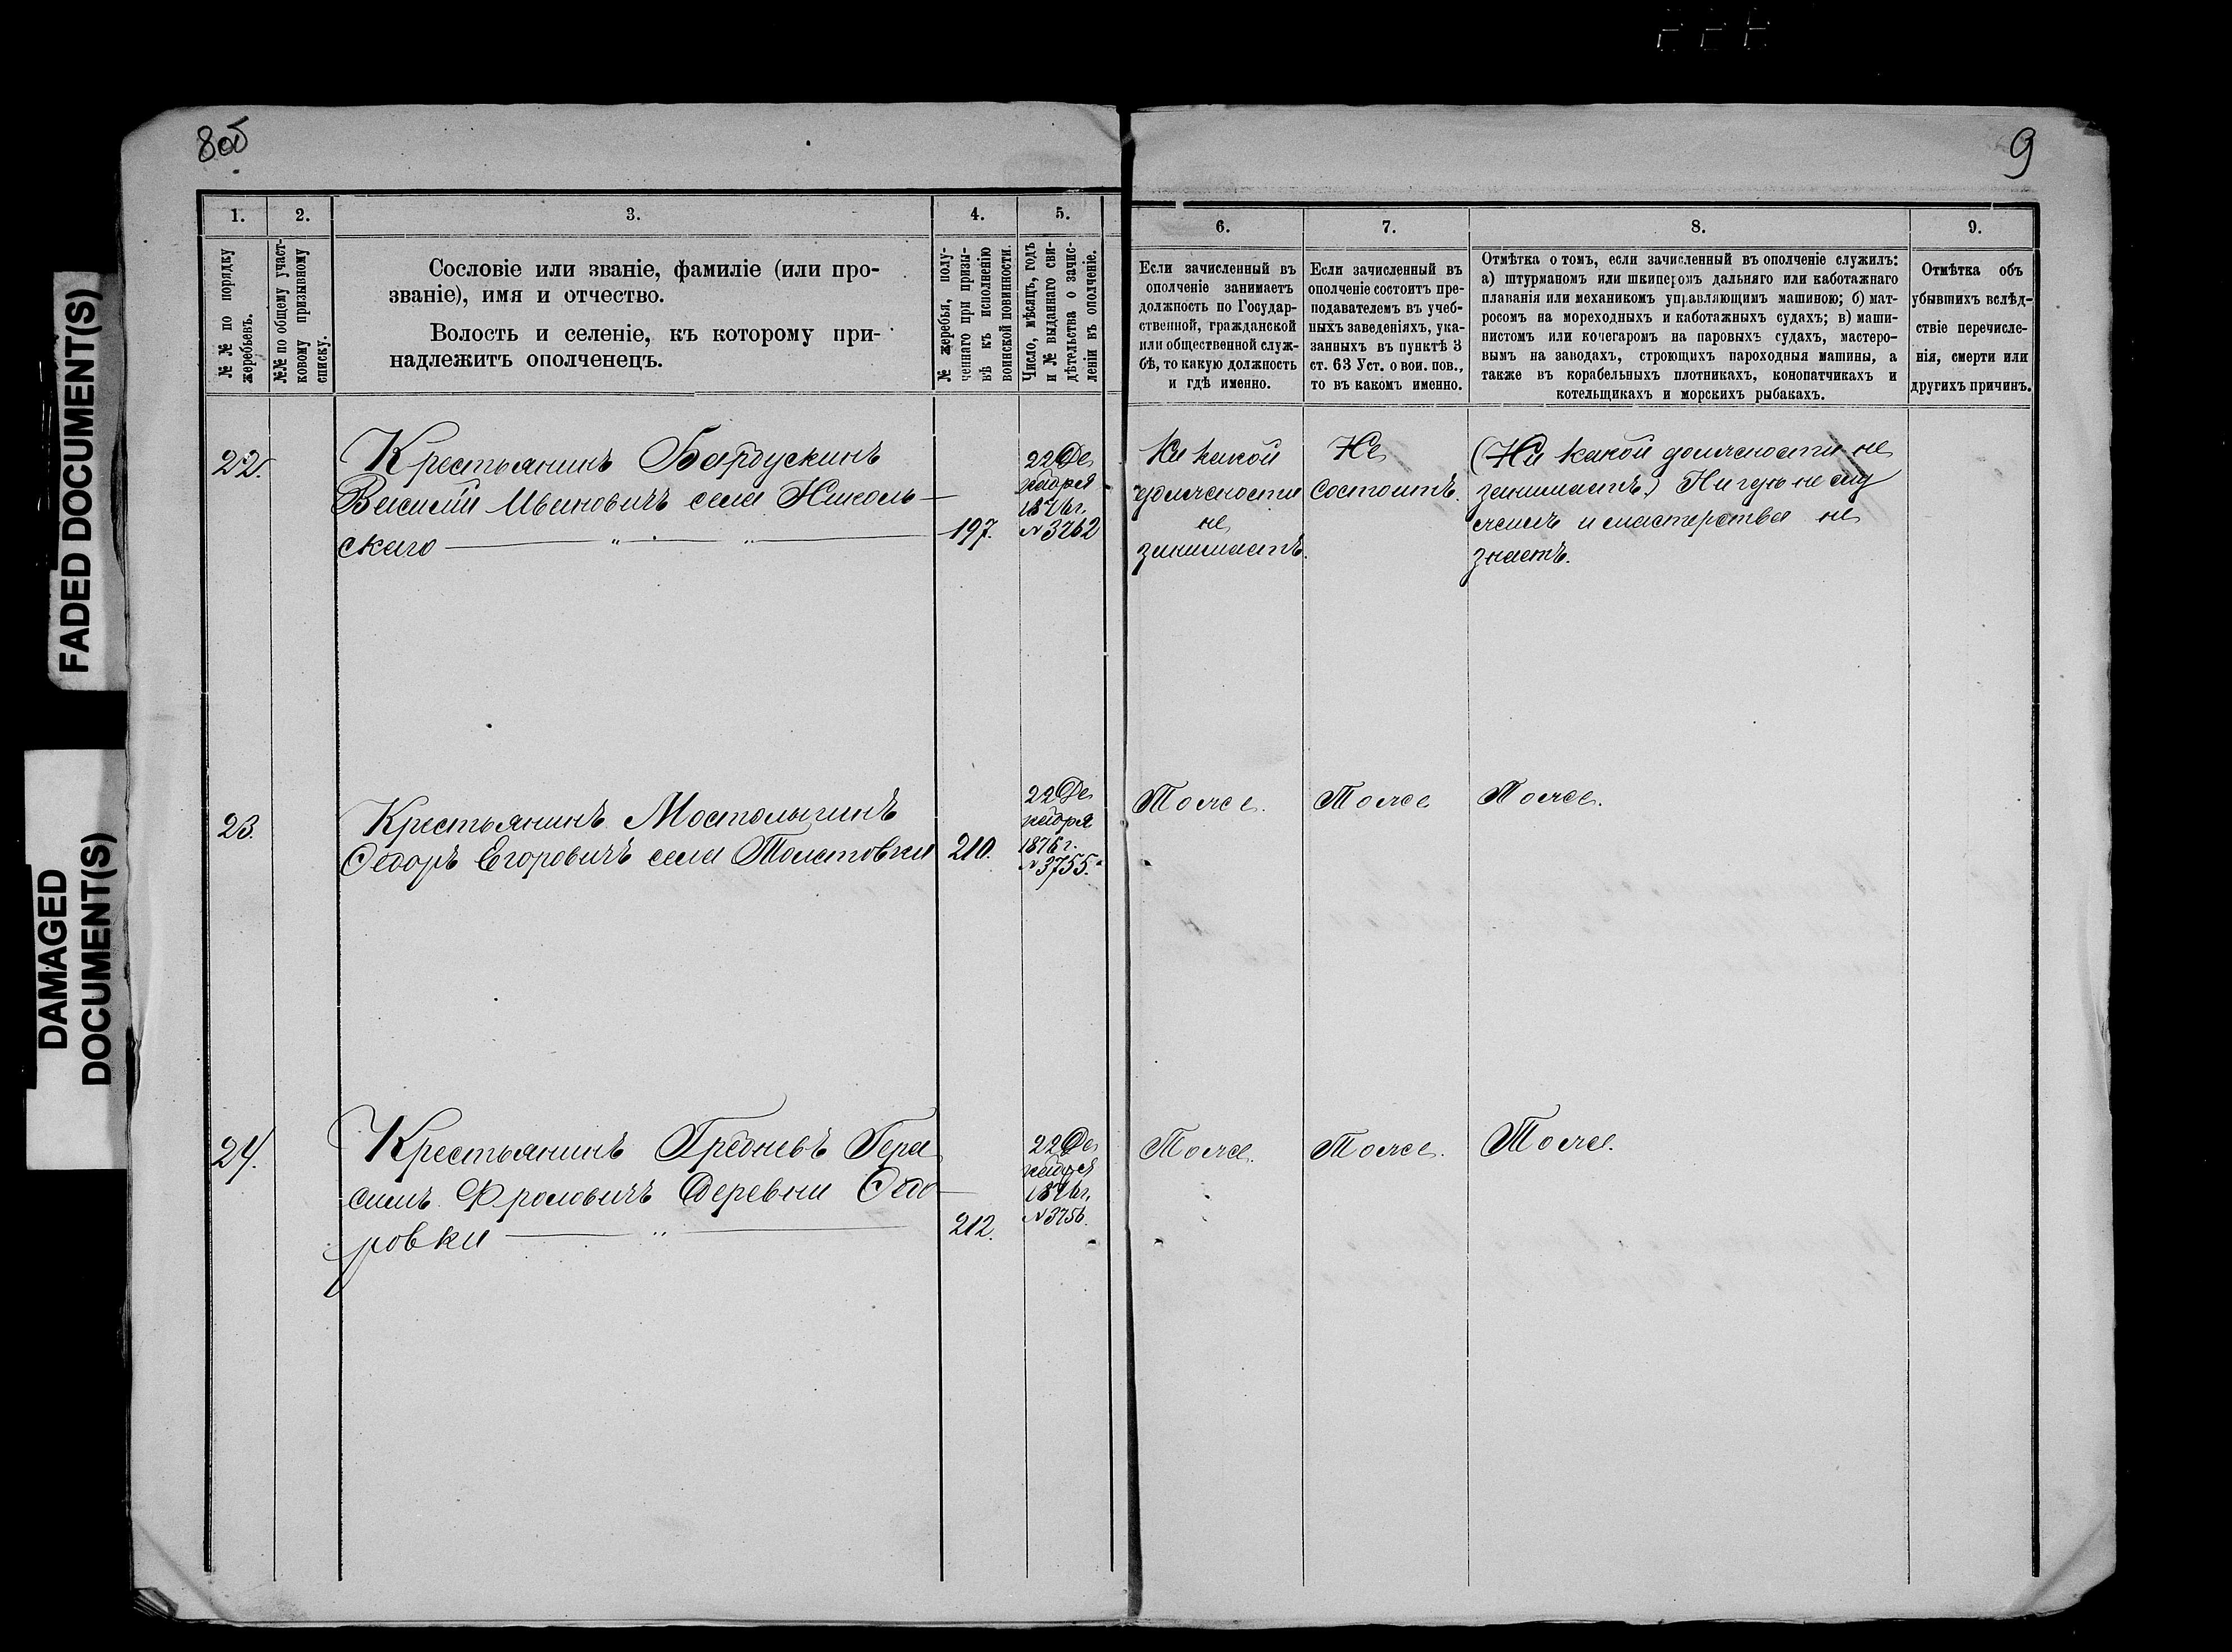 8об
9
1.
2.
3.
4.
5.
6.
7.
8.
9.
№ № по порядку
жеребьевъ.
№№ по общему участ-
ковому призывному
списку.
Сословіе или званіе, фамиліе (или про-
званіе), имя и отчество.
Волость и селеніе, къ которому при-
надлежитъ ополченецъ.
№ жеребья, полу-
ченнаго при призы-
вѣ къ исполненію
воинской повинности.
Число, мѣсяцъ, годъ
и № выданнаго сви-
дѣтельства о зачис-
леніи въ ополченіе.
Если зачисленный въ
ополченіе занимаетъ
должность по Государ-
ственной, гражданской
или общественной служ-
бѣ, то какую должность
и гдѣ именно.
Если зачисленный въ
ополченіе состоитъ пре-
подавателемъ въ учеб-
ныхъ заведеніяхъ, ука-
занныхъ въ пунктѣ 3
ст. 63 Уст. о вои. пов.,
то въ какомъ именно.
Отмѣтка о томъ, если зачисленный въ ополченіе служилъ:
а) штурманомъ или шкиперомъ дальняго или каботажнаго
плаванія или механикомъ управляющимъ машиною; б) мат-
росомъ на мореходныхъ и каботажныхъ судахъ; в) маши-
нистомъ или кочегаромъ на паровыхъ судахъ, мастеро-
вымъ на заводахъ, строющихъ пароходныя машины, а
также въ корабельныхъ плотникахъ, конопатчикахъ и
котельщикахъ и морскихъ рыбакахъ.
Отмѣтка объ
убывшихъ вслѣд-
ствіе перечисле-
нія, смерти или
другихъ причинъ.
22.
Крестьянинъ
Василій Ивановичъ села Николь-
скаго
197.
22 Де
кабря
1876 г.
№ 3762
Ни какой
должности
не
занимаетъ.
Не
состоитъ.
(Ни какой должности не
занимаетъ) Ни гдѣ не слу
жилъ и мастерства не
знаетъ.
23.
Крестьянинъ Мостолыгинъ
Ѳедоръ Егоровичъ села Толстовки
210.
22 Де
кабря
1876 г.
№ 3755.
Тоже.
Тоже
Тоже.
24.
Крестьянинъ Гредневъ Гера
симъ Фроловичъ деревни Ѳедо
ровки
212.
22 Де
кабря
1876 г.
№ 3756.
Тоже.
Тоже.
Тоже.
FADED DOCUMENT(S)
DAMAGED
DOCUMENT(S)